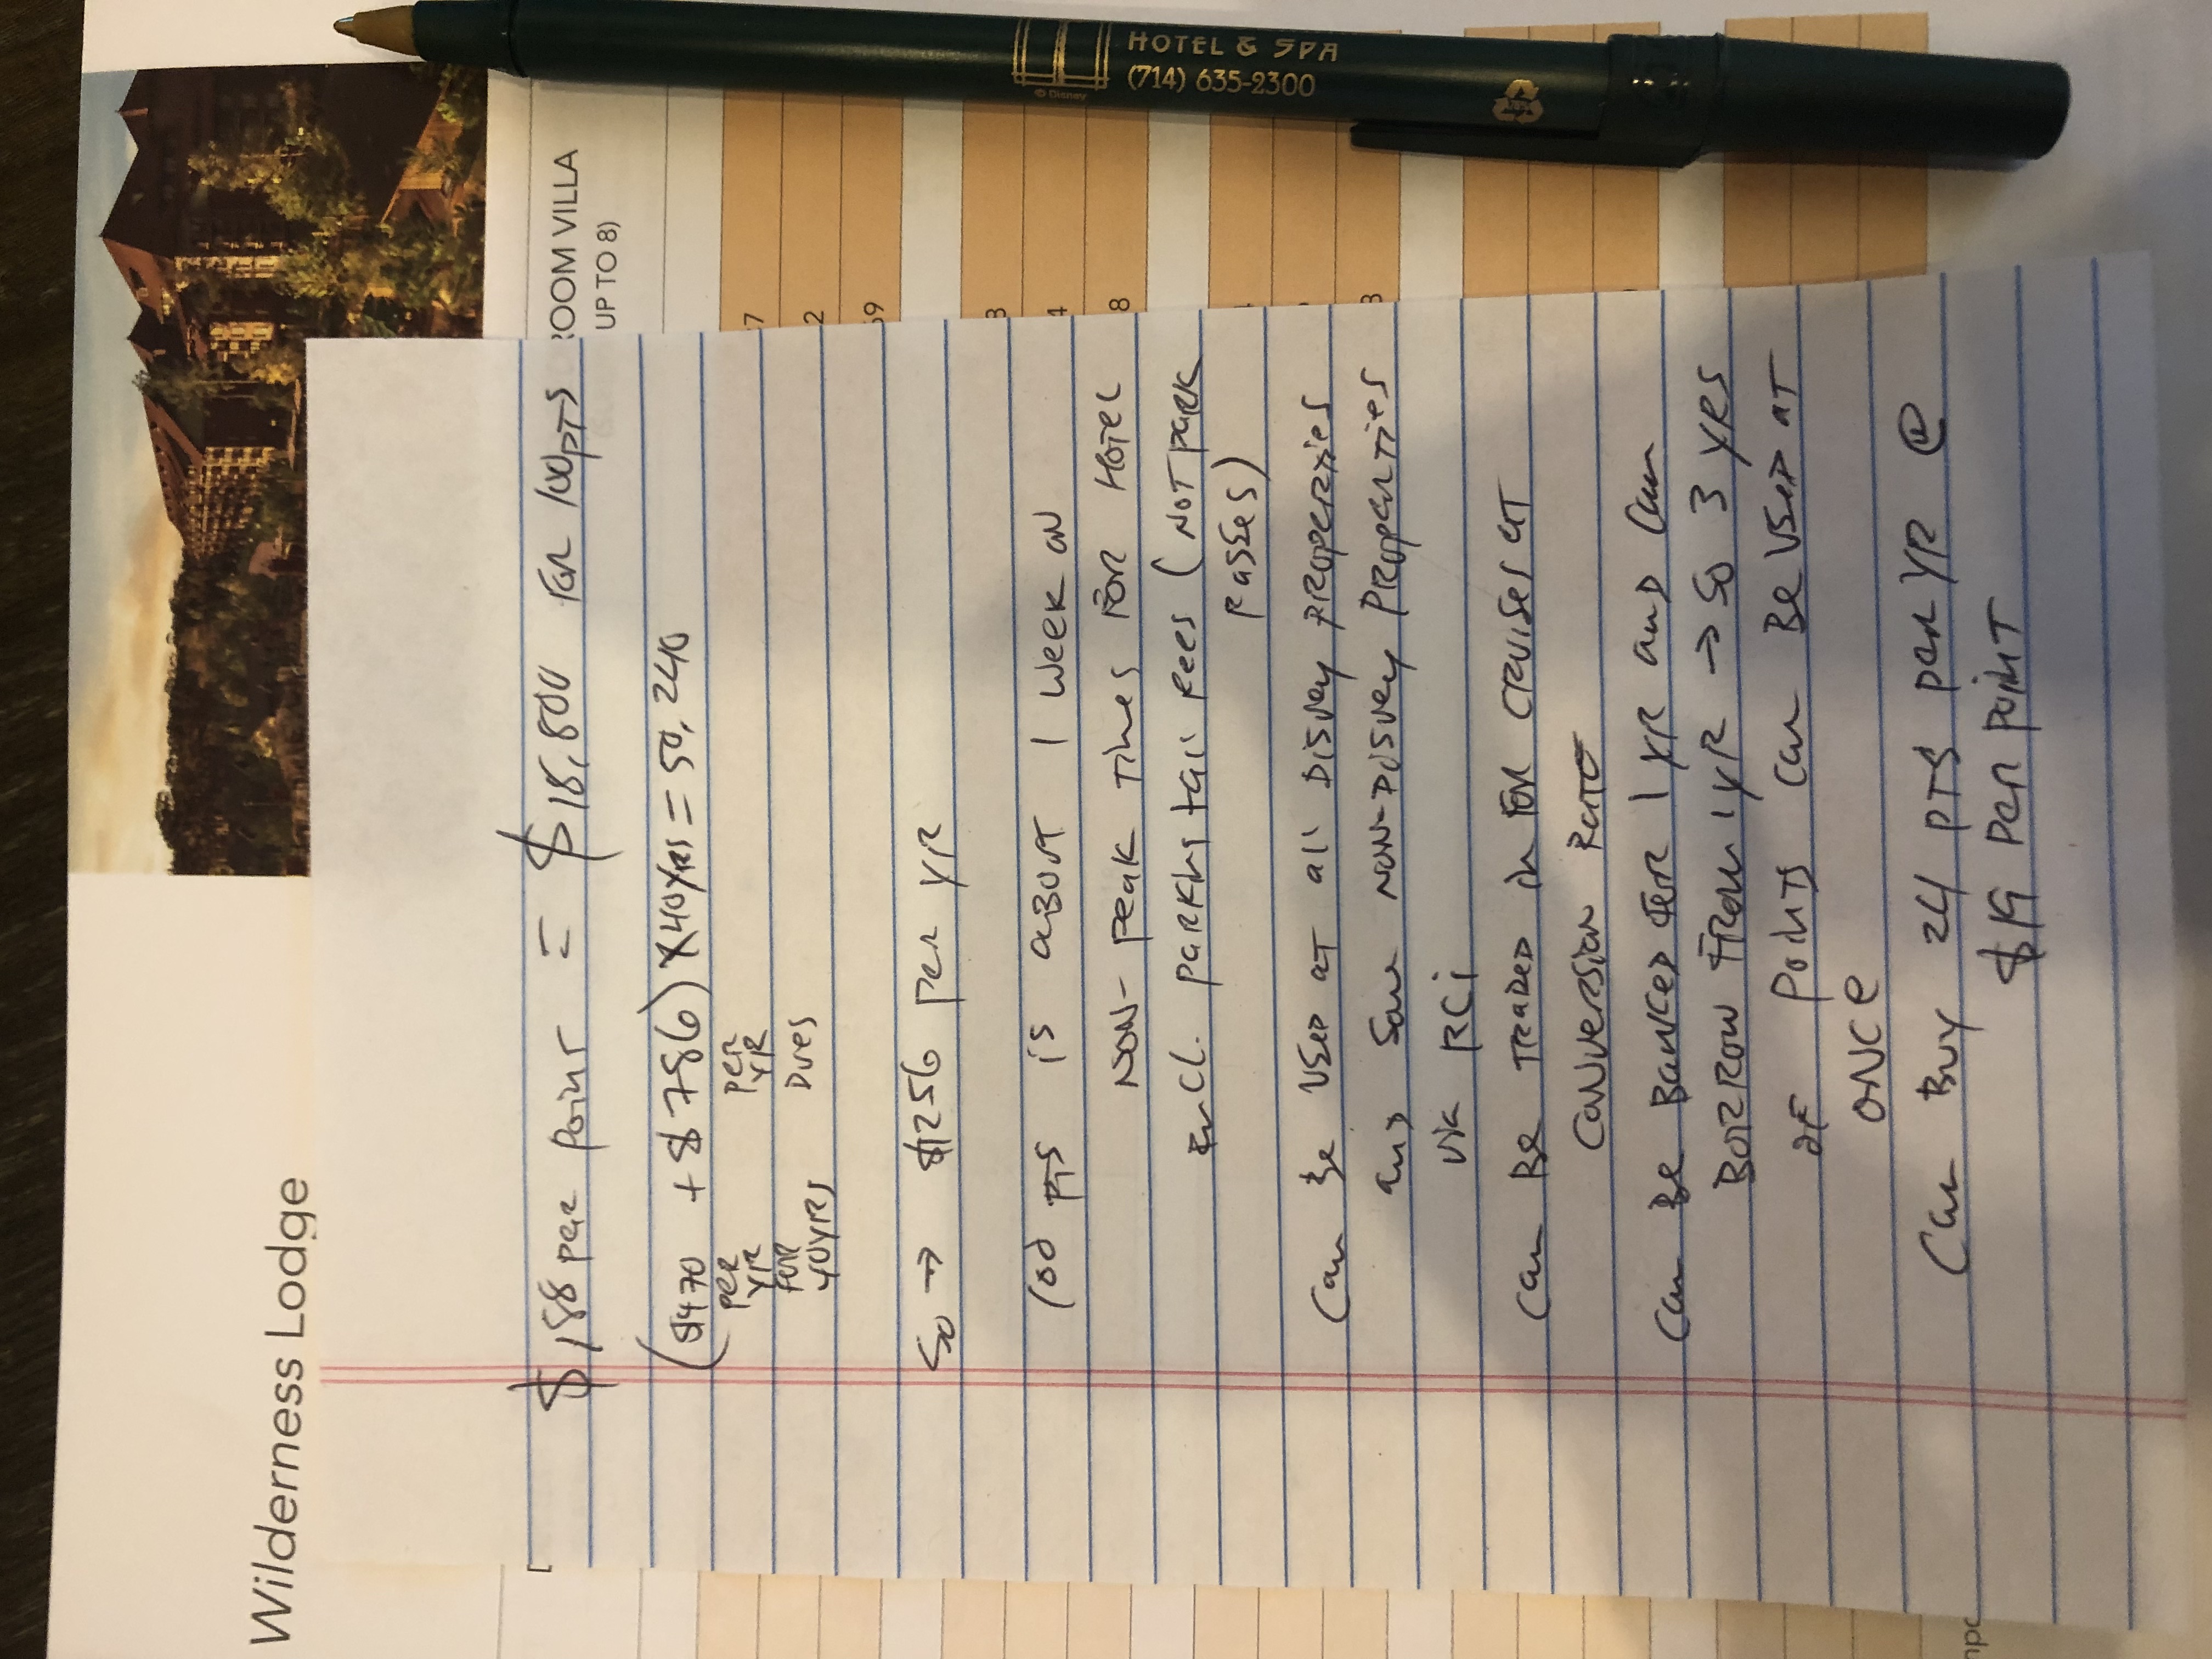 Wilderness Lodge
ROOM VILLA
UP TO 8)
7
2
59
3
4
8
3
HOTEL & SPA
(714) 635-2300
© Disney
$188 per point = $18,800 for 100pts
($470 + $786) x 40yrs = 50,240
per per
yr yr
for Dues
40yrs
So → $1256 per yr
100 pts is about 1 week on
non-peak times for Hotel
incl. parking + all fees (not park
passes)
Can be used at all Disney properties
and some non-Disney properties
via RCi
Can be traded in for cruises at
conversion rate
Can be banked for 1 yr and can
borrow from 1 yr → so 3 yrs
of points can be used at
once
Can buy 24 pts per yr @
$19 per point